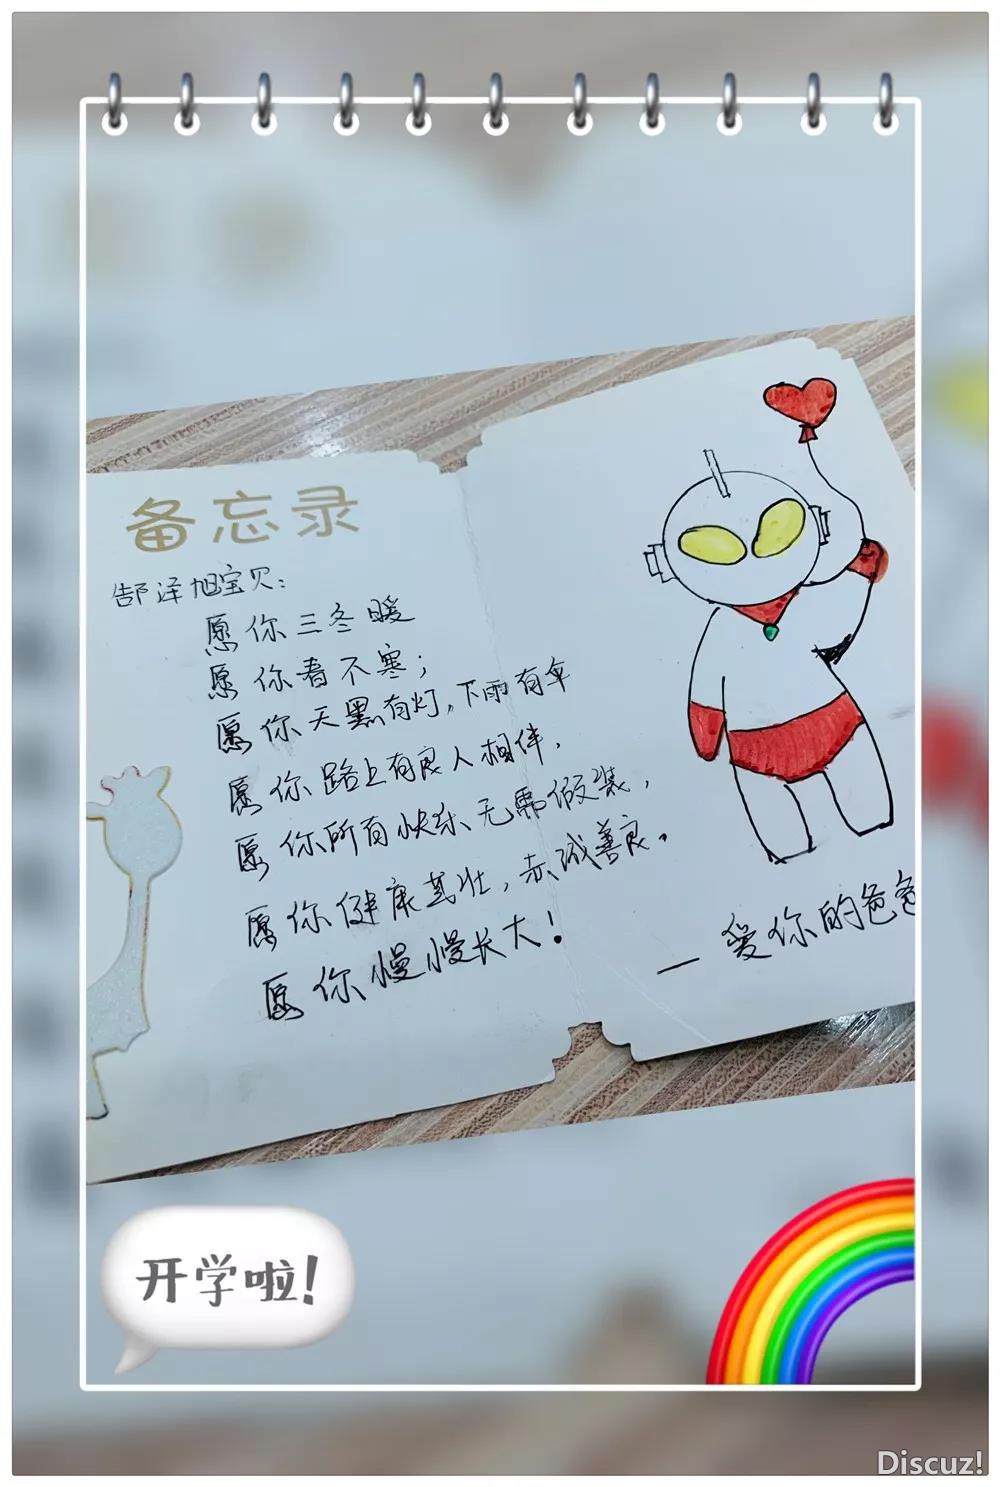 备忘录
郜泽旭宝贝:
愿你三冬暖
愿你春不寒;
愿你天黑有灯,下雨有伞
愿你路上有良人相伴,
愿你所有快乐无需假装,
愿你健康茁壮,赤诚善良。
愿你慢慢长大!
—爱你的爸爸
开学啦!
Discuz!